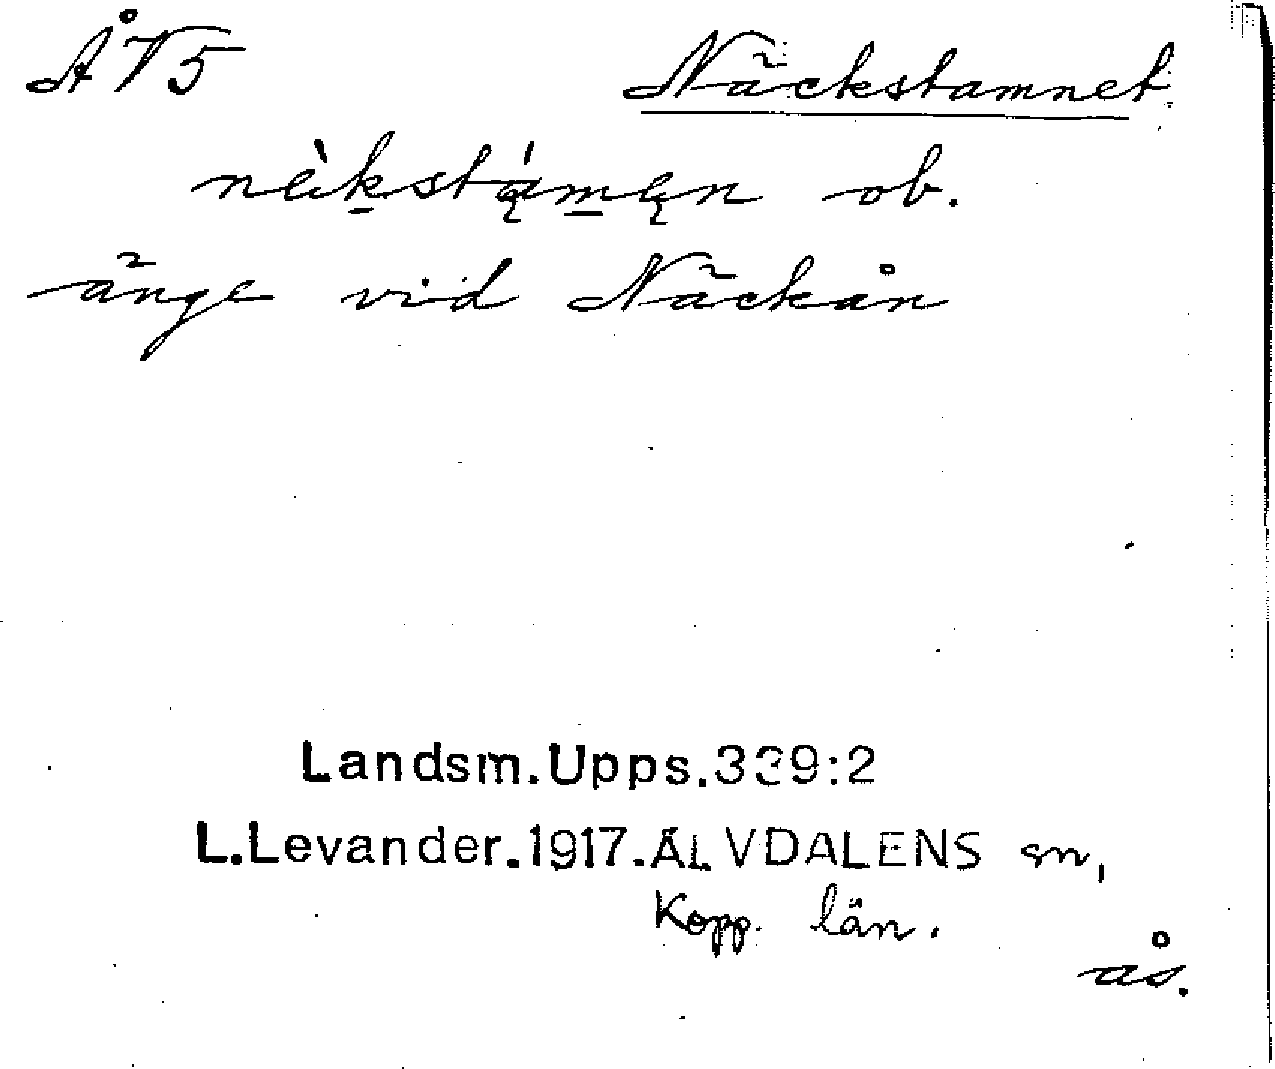 ÅV5 Näckstamnet
nèkstámęn ob.
änge vid Näckån
Landsm.Upps.339:2
L.Levander.1917.ÄLVDALENS sn,
Kopp. län.
ås.